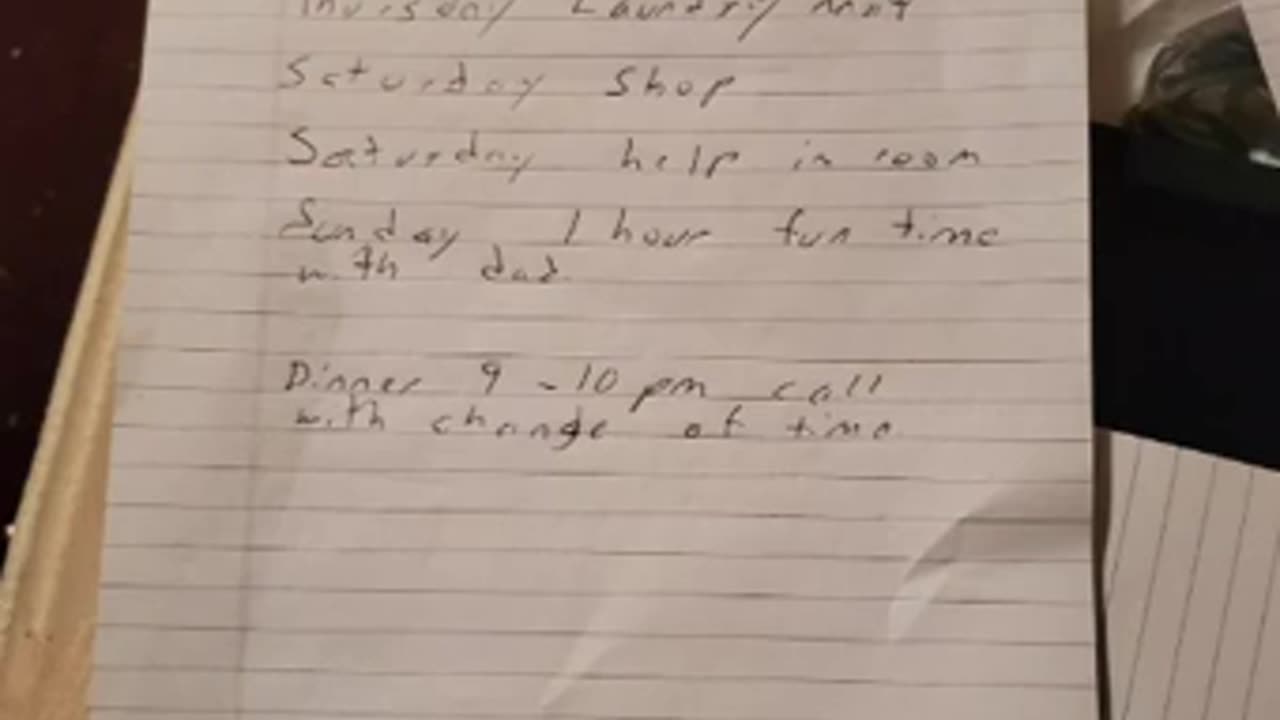 Thursday Laundry mat
Saturday Shop
Saturday help in room
Sunday 1 hour fun time
with dad.
Dinner 9 - 10 pm call
with change of time